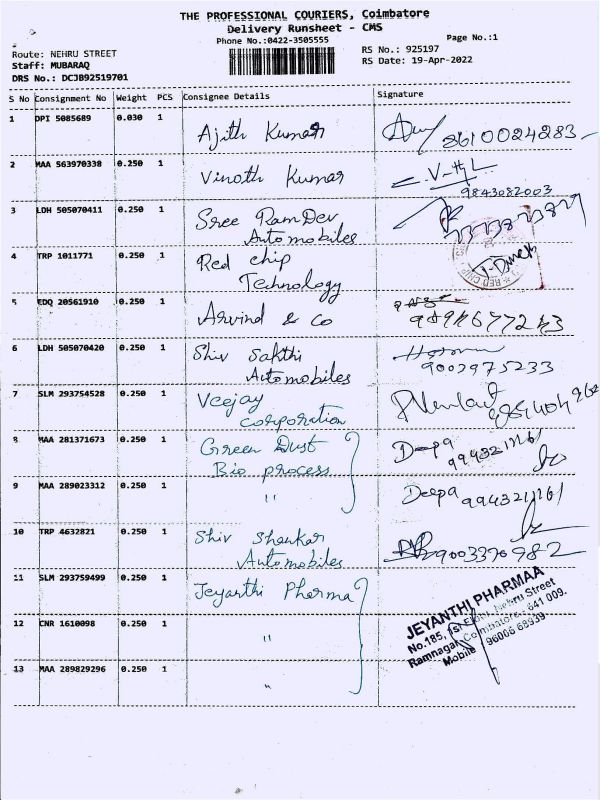 THE PROFESSIONAL COURIERS, Coimbatore
Delivery Runsheet - CMS
Phone No.:0422-3505555
Page No.:1
Route: NEHRU STREET
RS No.: 925197
Staff: MUBARAQ
RS Date: 19-Apr-2022
DRS No.: DCJB92519701
S No Consignment No Weight PCS Consignee Details Signature
1 DPI 5085689 0.030 1 Ajith Kumar 8610024283
2 MAA 563970338 0.250 1 Vinoth Kumar 9843082003
3 LDH 505070411 0.250 1 Sree RamDev
Automobiles
4 TRP 1011771 0.250 1 Red chip
Technology
5 EDQ 20561910 0.250 1 Arvind & Co
6 LDH 505070420 0.250 1 Shiv Sakthi
Automobiles 9003975233
7 SLM 293754528 0.250 1 Veejay
corporation
8 MAA 281371673 0.250 1 Green Dust Deepa
Bio process
9 MAA 289023312 0.250 1 " Deepa
10 TRP 4632821 0.250 1 Shiv Shankar
Automobiles
11 SLM 293759499 0.250 1 Jeyanthi Pharma
12 CNR 1610098 0.250 1 "
13 MAA 289829296 0.250 1 "
JEYANTHI PHARMAA
No.185, Nehru Street
Ramnagar, Coimbatore - 641 009.
Mobile 96006 68939